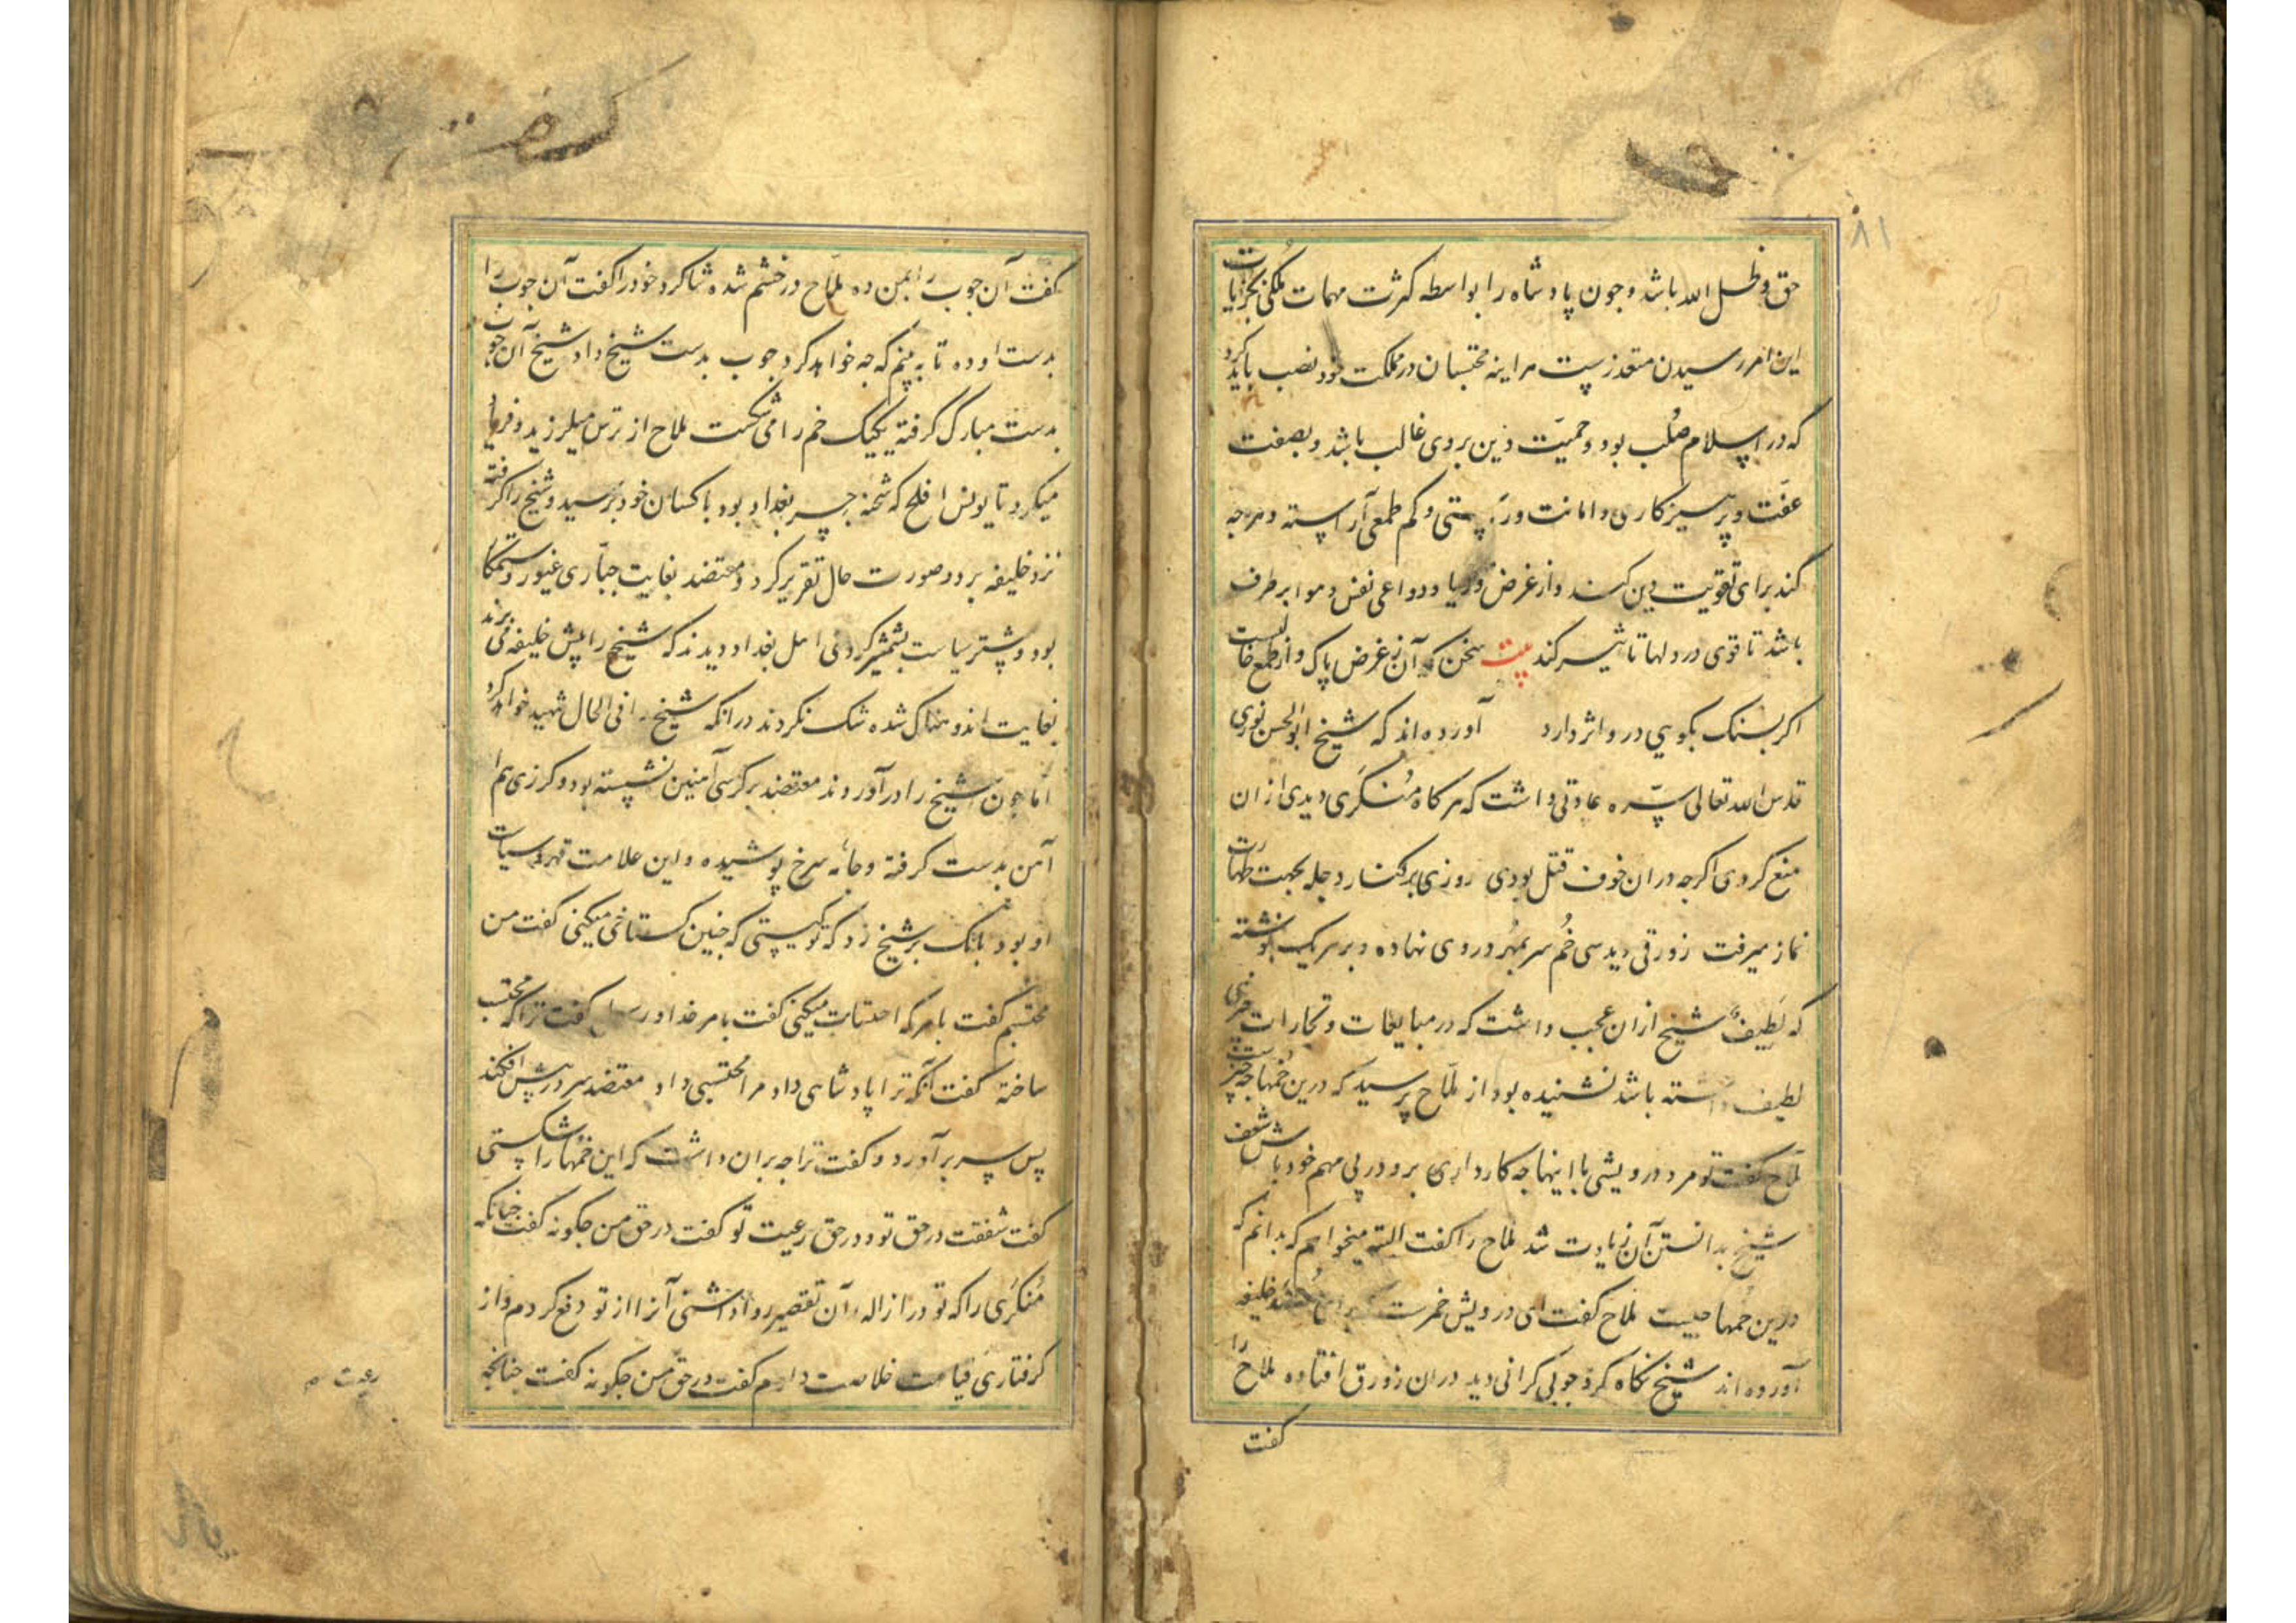 ۸۱
حق و ظل الله باشد و جون پادشاه را بواسطه کثرت مهمات ملکی بجزئیات
این امر رسیدن متعذرست هراینه محتسبان در مملکت خود نصب باید کرد
که در اسلام صُلب بود و حمیّت دین بر وی غالب باشد و بصفت
عفّت و پرهیزکاری و امانت و رَاستی و کم طمعی آراسته و هرجه
کند برای تقویت دین کند و از غرض و ریا و دواعی نفس و هوا بر طرف
باشد تا قوی در دلها تاثیر کند بیت سخن که آن ز غرض پاک و از طمع خالیست
اکر بسنک بکویی درو اثر دارد آورده اند که شیخ ابوالحسن نوری
قدس الله تعالی سرّه عادتی داشت که هر کاه مُنکَری دیدی از ان
منع کردی اکرجه در ان خوف قتل بودی روزی بر کنار دجله بجهت طهارت
نماز میرفت زورقی دید سی خُم سر بمُهر در وی نهاده و بر هریک نوشته
که لَطِیفٌ شیخ از ان عجب داشت که در مبایعات و تجارات جیزی
لطیف داشته باشد نشنیده بود از ملّاح پرسید که درین خُمها جه جیزست
ملّاح کفت تو مرد درویشی با اینها جه کار داری برو در پی مهم خود باش شعف
شیخ بدانستن آن زیادت شد ملاح را کفت البته میخواهم که بدانم که
درین خُمها جیست ملاح کفت ای درویش خمرست خلیفه
آورده اند شیخ نکاه کرد جوبی کرانی دید در ان زورق افتاده ملاح را
کفت
کفت آن جوب را بمن ده ملّاح در خشم شده شاکرد خود را کفت آن جوب را
بدست او ده تا به بینم که جه خواهد کرد جوب بدست شیخ داد شیخ آن جوب
بدست مبارک کرفته یکیک خم را می شکست ملاح از ترس میلرزید و فریاد
میکرد تا یونس افلح که شحنه جسر بغداد بود با کسان خود برسید و شیخ را کرفته
نزد خلیفه برد و صورت حال تقریر کرد و معتضد بغایت جبّاری غیور و ستمکار
بود و پشتر سیاست بشمشیر کردی اهل بغداد دیدند که شیخ را پیش خلیفه می برند
بغایت اندوهناک شده شک نکردند درانکه شیخ را فی الحال شهید خواهد کرد
امّا جون شیخ را در آوردند معتضد بر کرسی آهنین نشسته بود و کرزی هم از
آهن بدست کرفته و جامه سرخ پوشیده و این علامت قهر و سیاست
او بود بانک بر شیخ زد که تو کیستی که جنین کستاخی میکنی کفت من
محتسبم کفت بامر که احتساب میکنی کفت بامر خدا و رسول کفت ترا که محتسب
ساخته کفت آنکه ترا پادشاهی داد مرا محتسبی داد معتضد سر در پیش افکند
پس سر بر آورد و کفت ترا جه بران داشت که این خُمها را شکستی
کفت شفقت در حق تو و در حق رعیت تو کفت در حق من جکونه کفت جنانکه
مُنکَری را که تو در ازاله آن تقصیر روا داشتی آنرا از تو دفع کردم و از
کرفتاری قیامت خلاصت دادم کفت در حق من جکونه کفت جنانجه
رعیت